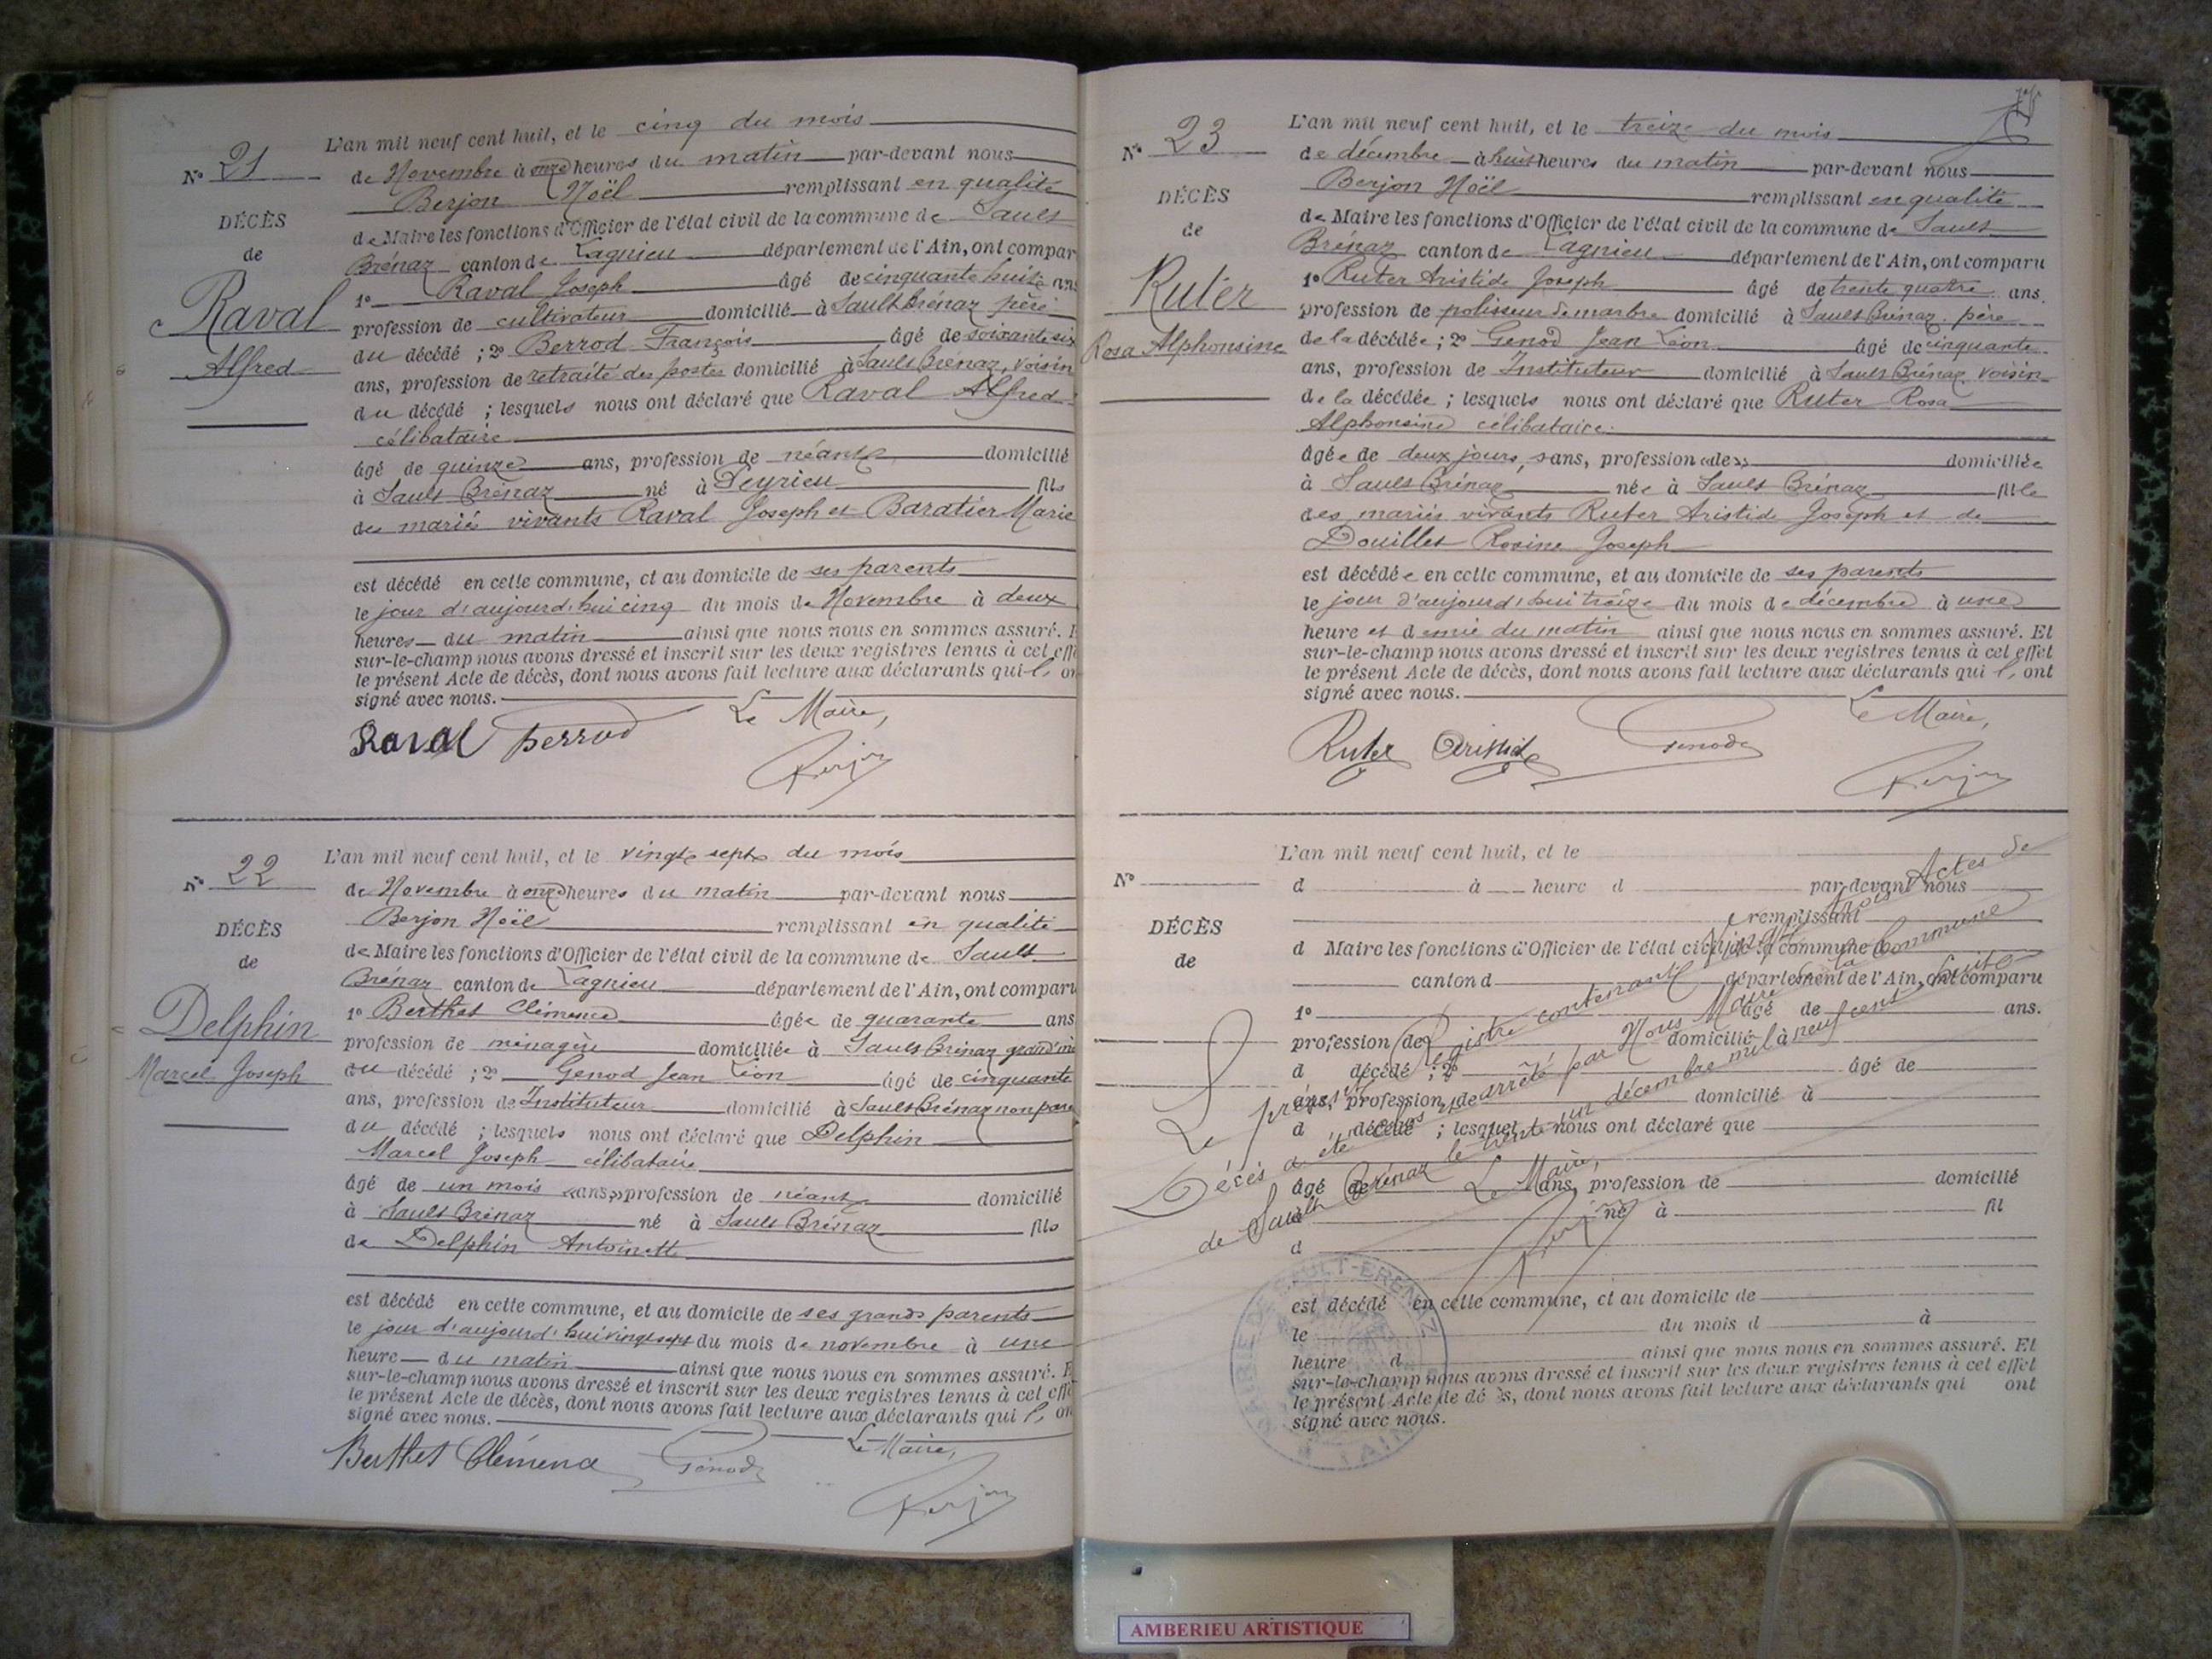 N° 21
DÉCÈS
de
Raval
Alfred
L'an mil neuf cent huit, et le cinq du mois
de Novembre à onze heures du matin par-devant nous
Berjon Noël remplissant en qualité
de Maire les fonctions d'Officier de l'état civil de la commune de Sault
Brénaz canton de Lagnieu département de l'Ain, ont compar
1° Raval Joseph âgé de cinquante huit ans
profession de cultivateur domicilié à Sault Brénaz père
du décédé ; 2° Berrod François âgé de soixante six
ans, profession de retraité des postes domicilié à Sault Brénaz, voisin
du décédé ; lesquels nous ont déclaré que Raval Alfred
célibataire
âgé de quinze ans, profession de néant domicilié
à Sault Brénaz né à Peyrieu fils
des mariés vivants Raval Joseph et Baratier Marie
est décédé en cette commune, et au domicile de ses parents
le jour d'aujourd'hui cinq du mois de Novembre à deux
heures du matin ainsi que nous nous en sommes assuré. E
sur-le-champ nous avons dressé et inscrit sur les deux registres tenus à cet effe
le présent Acte de décès, dont nous avons fait lecture aux déclarants qui l' on
signé avec nous. Le Maire,
Raval Berrod
Berjon
N° 22
DÉCÈS
de
Delphin
Marcel Joseph
L'an mil neuf cent huit, et le vingt sept du mois
de Novembre à onze heures du matin par-devant nous
Berjon Noël remplissant en qualité
de Maire les fonctions d'Officier de l'état civil de la commune de Sault
Brénaz canton de Lagnieu département de l'Ain, ont comparu
1° Berthet Clémence âgée de quarante ans
profession de ménagère domiciliée à Sault Brénaz grand'mè
du décédé ; 2° Genod Jean Léon âgé de cinquante
ans, profession de Instituteur domicilié à Sault Brénaz non pare
du décédé ; lesquels nous ont déclaré que Delphin
Marcel Joseph célibataire
âgé de un mois «ans,» profession de néant domicilié
à Sault Brénaz né à Sault Brénaz fils
de Delphin Antoinette
est décédé en cette commune, et au domicile de ses grands parents
le jour d'aujourd'hui vingt sept du mois de novembre à une
heure du matin ainsi que nous nous en sommes assuré. E
sur-le-champ nous avons dressé et inscrit sur les deux registres tenus à cet effe
le présent Acte de décès, dont nous avons fait lecture aux déclarants qui l' on
signé avec nous. Le Maire,
Berthet Clémence Genod
Berjon
N° 23
DÉCÈS
de
Ruter
Rosa Alphonsine
L'an mil neuf cent huit, et le treize du mois
de décembre à huit heures du matin par-devant nous
Berjon Noël remplissant en qualité
de Maire les fonctions d'Officier de l'état civil de la commune de Sault
Brénaz canton de Lagnieu département de l'Ain, ont comparu
1° Ruter Aristide Joseph âgé de trente quatre ans.
profession de polisseur de marbre domicilié à Sault Brénaz père
de la décédée ; 2° Genod Jean Léon âgé de cinquante
ans, profession de Instituteur domicilié à Sault Brénaz voisin
de la décédée ; lesquels nous ont déclaré que Ruter Rosa
Alphonsine célibataire
âgée de deux jours, sans, profession «de» domiciliée
à Sault Brénaz née à Sault Brénaz fille
des mariés vivants Ruter Aristide Joseph et de
Douillet Rosine Joseph
est décédée en cette commune, et au domicile de ses parents
le jour d'aujourd'hui treize du mois de décembre à une
heure et demie du matin ainsi que nous nous en sommes assuré. Et
sur-le-champ nous avons dressé et inscrit sur les deux registres tenus à cet effet
le présent Acte de décès, dont nous avons fait lecture aux déclarants qui l' ont
signé avec nous. Le Maire,
Ruter Aristide Genod
Berjon
N°
DÉCÈS
de
L'an mil neuf cent huit, et le
d à heure d par-devant nous
remplissant
d Maire les fonctions d'Officier de l'état civil de la commune d
canton d département de l'Ain, ont comparu
1° âgé de ans.
profession de domicilié à
d décédé ; 2° âgé de
ans, profession de domicilié à
d décédé ; lesquel nous ont déclaré que
âgé de ans, profession de domicilié
à né à fil
d
est décédé en cette commune, et au domicile de
le du mois d à
heure d ainsi que nous nous en sommes assuré. Et
sur-le-champ nous avons dressé et inscrit sur les deux registres tenus à cet effet
le présent Acte de décès, dont nous avons fait lecture aux déclarants qui ont
signé avec nous.
Le présent Registre contenant vingt trois Actes de
Décès a été clos et arrêté par Nous Maire de la Commune
de Sault Brénaz le trente un décembre mil neuf cent huit
Le Maire,
Berjon
MAIRIE DE SAULT-BRÉNAZ
AIN
AMBERIEU ARTISTIQUE